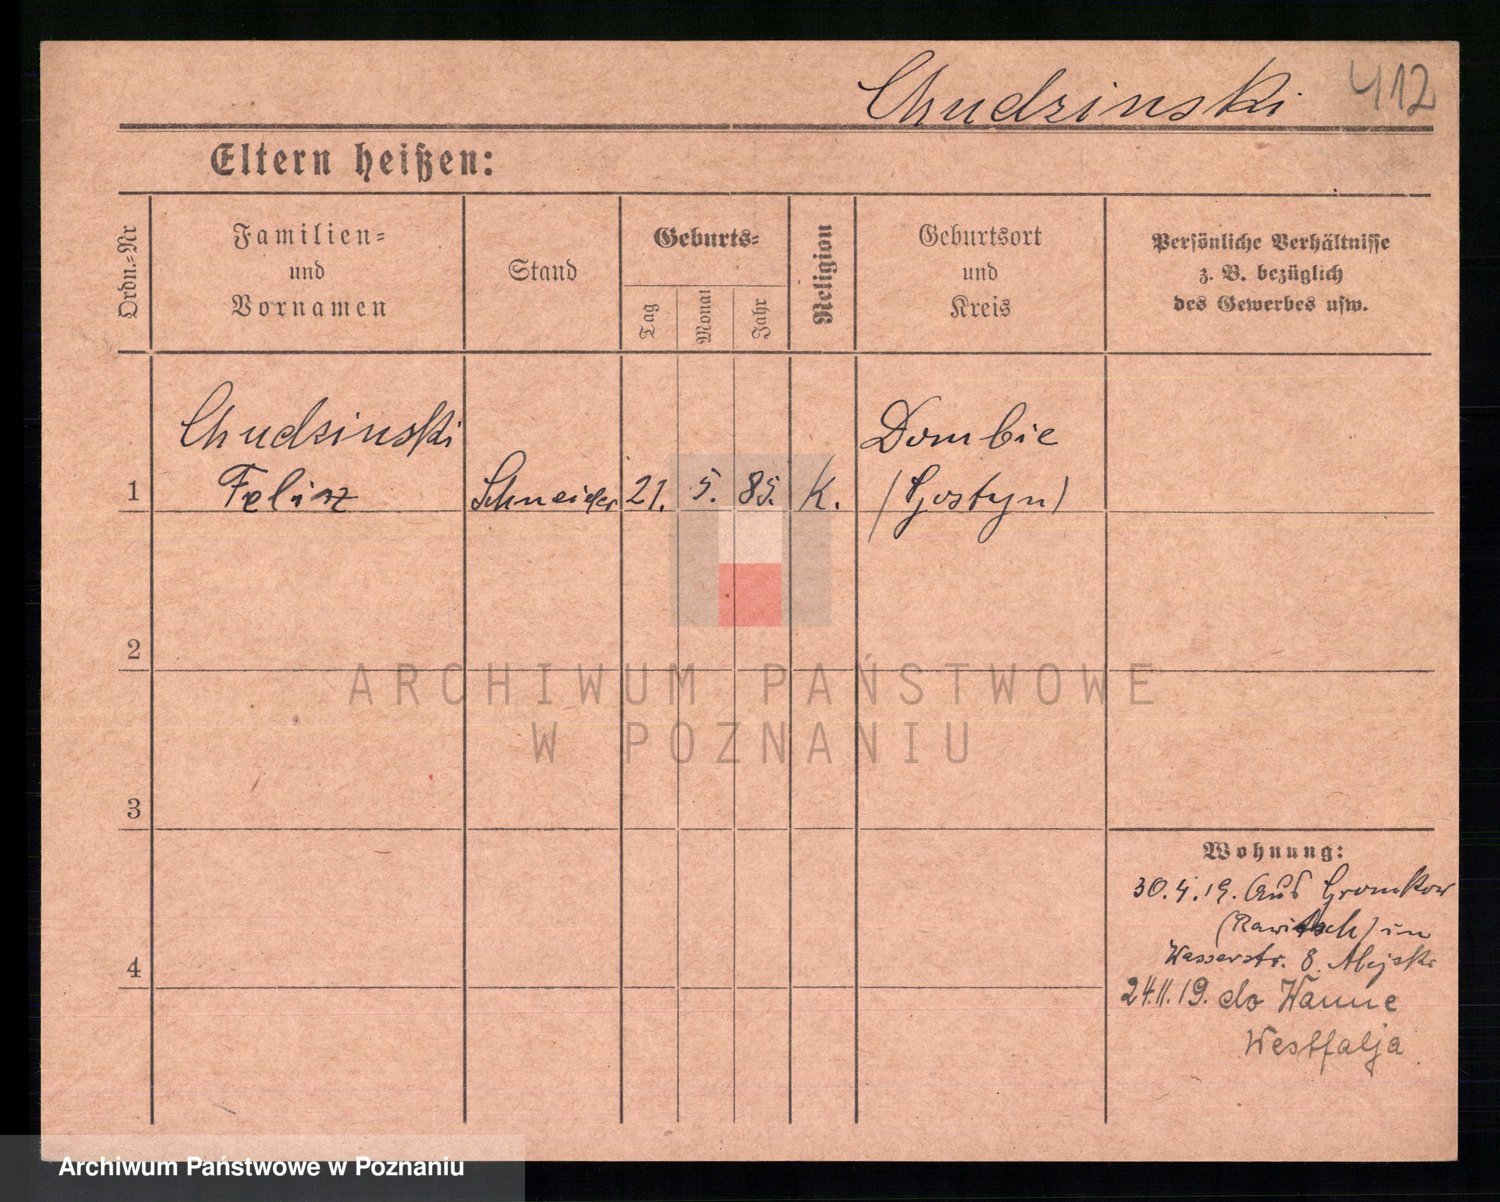 Chudzinski 412
Eltern heißen:
Ordn.-Nr
Familien-
und
Vornamen
Stand
Geburts-
Tag
Monat
Jahr
Religion
Geburtsort
und
Kreis
Persönliche Verhältnisse
z. B. bezüglich
des Gewerbes usw.
Chudzinski
Dombie
1 Felix Schneider 21. 5. 85. K. (Gostyn)
2
3
4
Wohnung:
30.4.19. Aus Gromkow
(Rawitsch) in
Wasserstr. 8.
24.11.19. do Wanne
Westfalja
ARCHIWUM PAŃSTWOWE
W POZNANIU
Archiwum Państwowe w Poznaniu